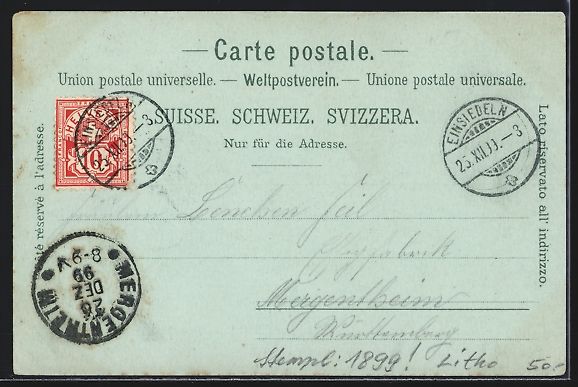 — Carte postale. —
Union postale universelle. — Weltpostverein. — Unione postale universale.
SUISSE. SCHWEIZ. SVIZZERA.
Nur für die Adresse.
Côté réservé à l'adresse.
Lato riservato all' indirizzo.
HELVETIA
10
EINSIEDELN
25.XII.99.–3
EINSIEDELN
25.XII.99.–3
Lenchen
Mergentheim
Württemberg
MERGENTHEIM
26
DEZ
99
8-9V
Stempl: 1899! Litho 50.-